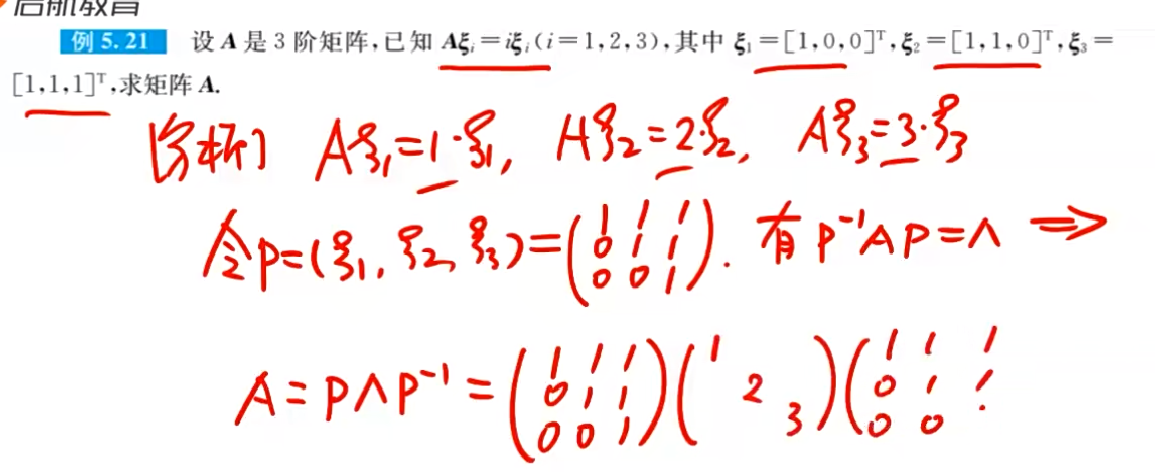 启航教育
例 5.21 设 A 是 3 阶矩阵,已知 Aξᵢ=iξᵢ(i=1,2,3),其中 ξ₁=[1,0,0]ᵀ,ξ₂=[1,1,0]ᵀ,ξ₃=
[1,1,1]ᵀ,求矩阵 A.
[分析] Aξ₁=1·ξ₁, Aξ₂=2·ξ₂, Aξ₃=3·ξ₃
令P=(ξ₁, ξ₂, ξ₃)=(1 1 1; 0 1 1; 0 0 1). 有 P⁻¹AP=Λ ⟹
A=PΛP⁻¹=(1 1 1; 0 1 1; 0 0 1)(1 2 3)(1 1 1; 0 1 1; 0 0